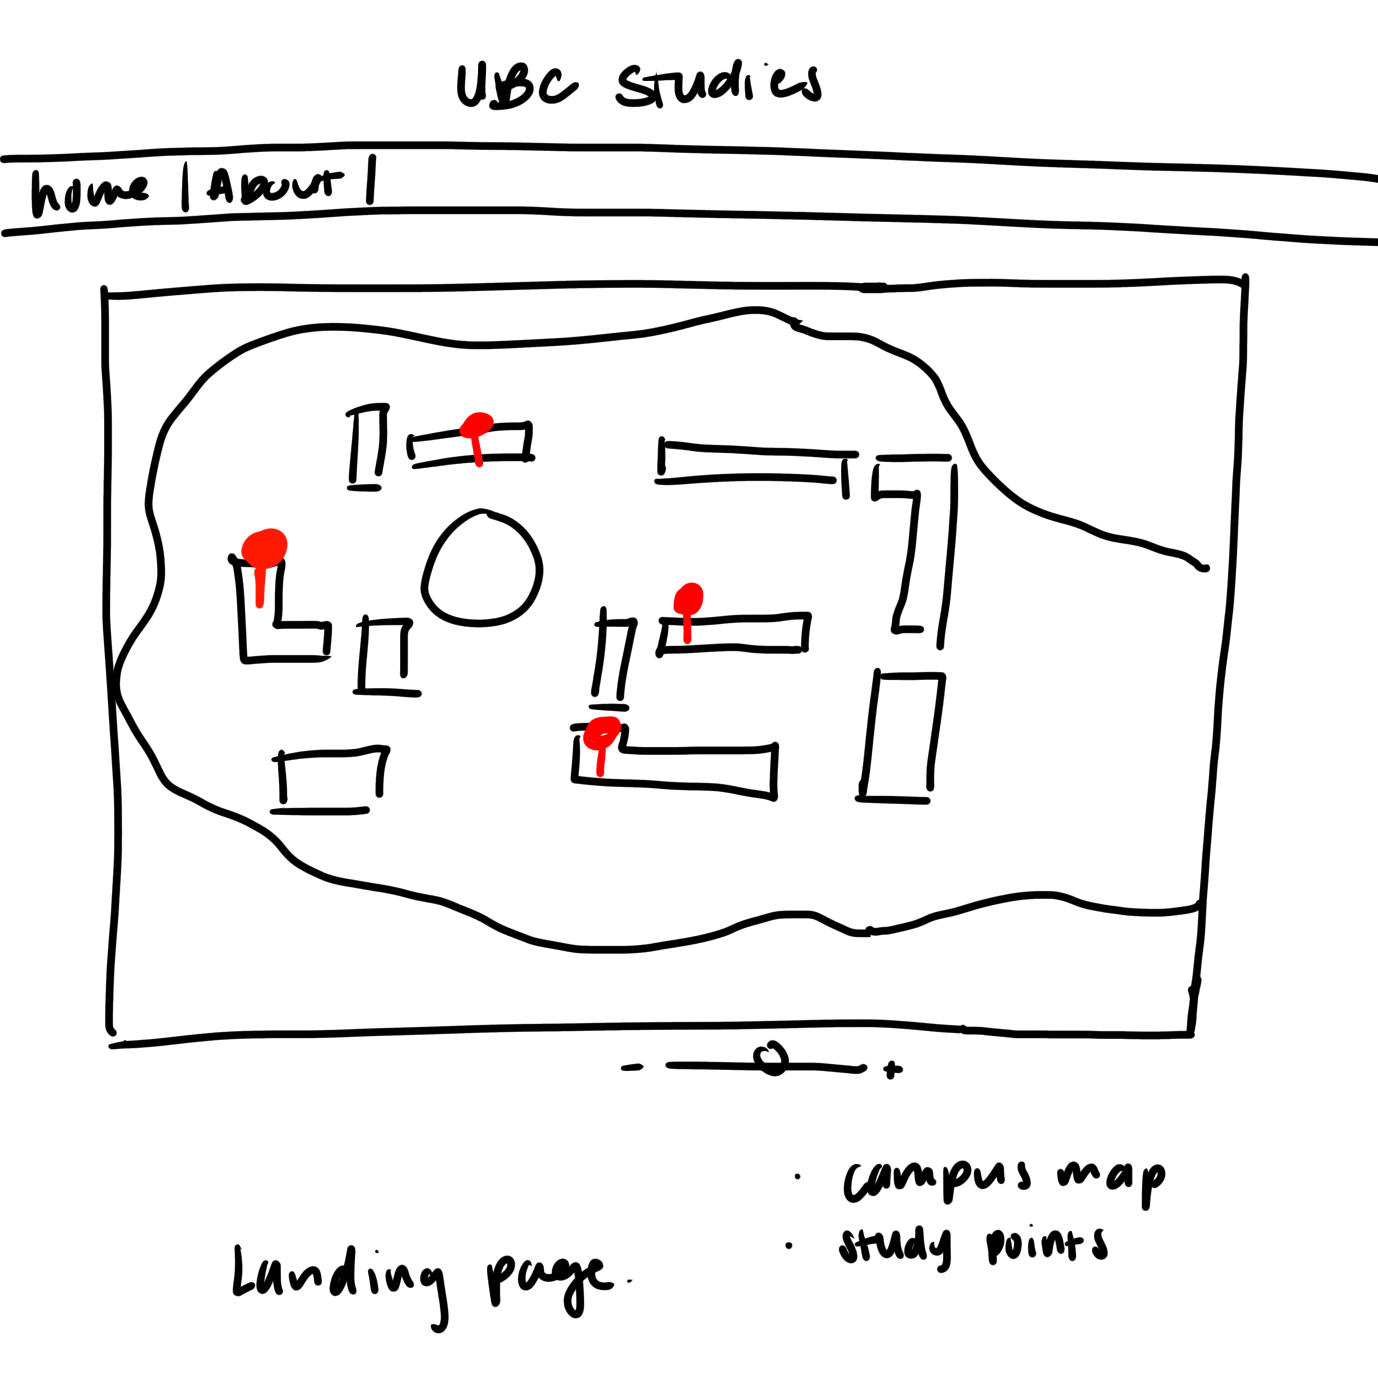 UBC Studies
home | About |
- +
· campus map
· study points
Landing page.